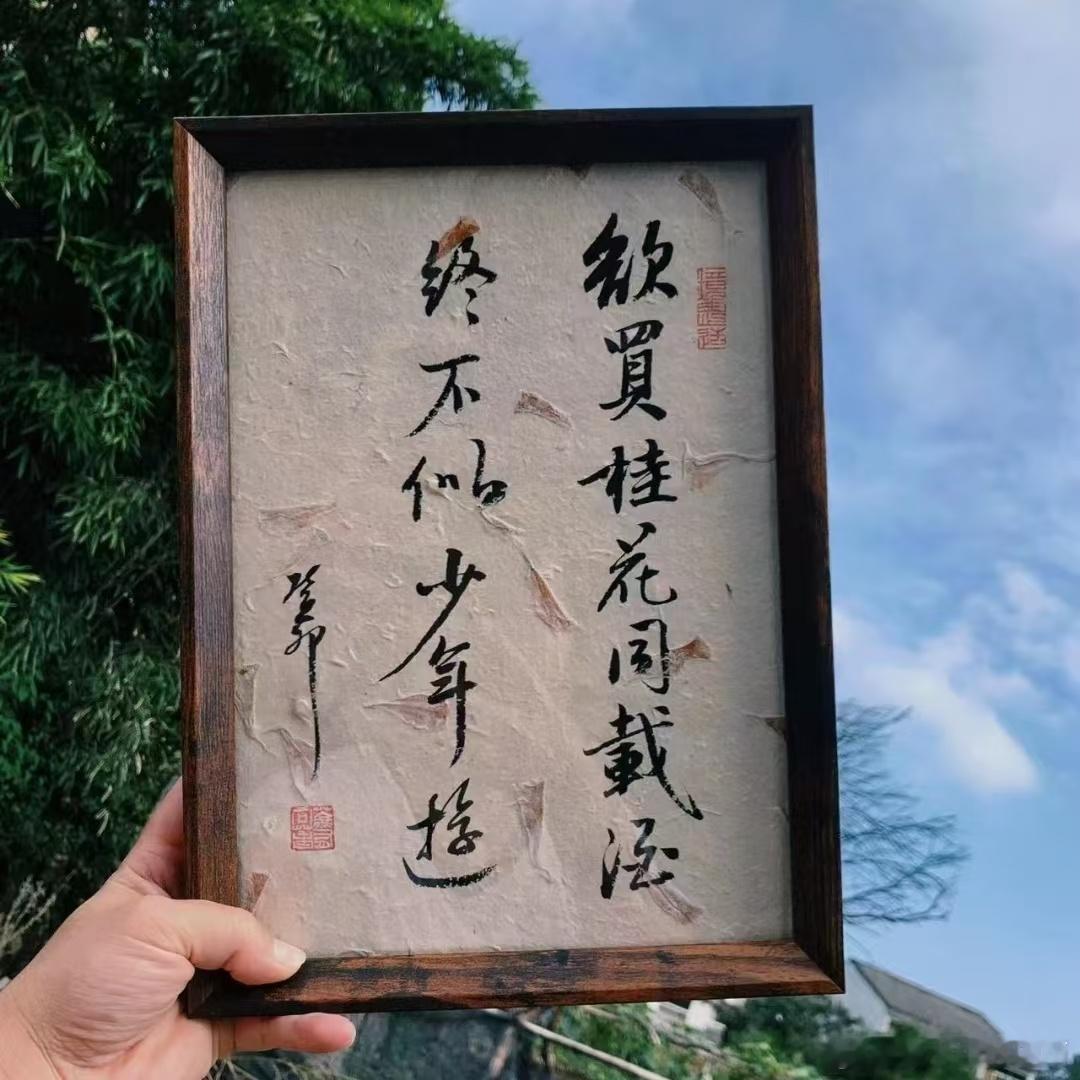 欲買桂花同載酒
終不似少年遊
癸卯